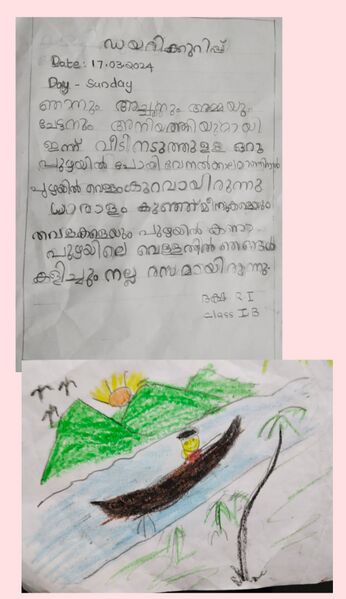 ഡയറിക്കുറിപ്പ്
Date: 17.03.2024
Day - Sunday
ഞാനും അച്ഛനും അമ്മയും
ചേട്ടനും അനിയത്തിയുമായി
ഇന്ന് വീടിനടുത്തുള്ള ഒരു
പുഴയിൽ പോയി വേനൽക്കാലമായതിനാൽ
പുഴയിൽ വെള്ളംകുറവായിരുന്നു
ധാരാളം കുഞ്ഞ്മീനുകളെയും
തവളകളെയും പുഴയിൽ കണ്ടു
പുഴയിലെ വെള്ളത്തിൽ ഞങ്ങൾ
കളിച്ചും നല്ല രസമായിരുന്നു.
ദക്ഷ R I
class I B